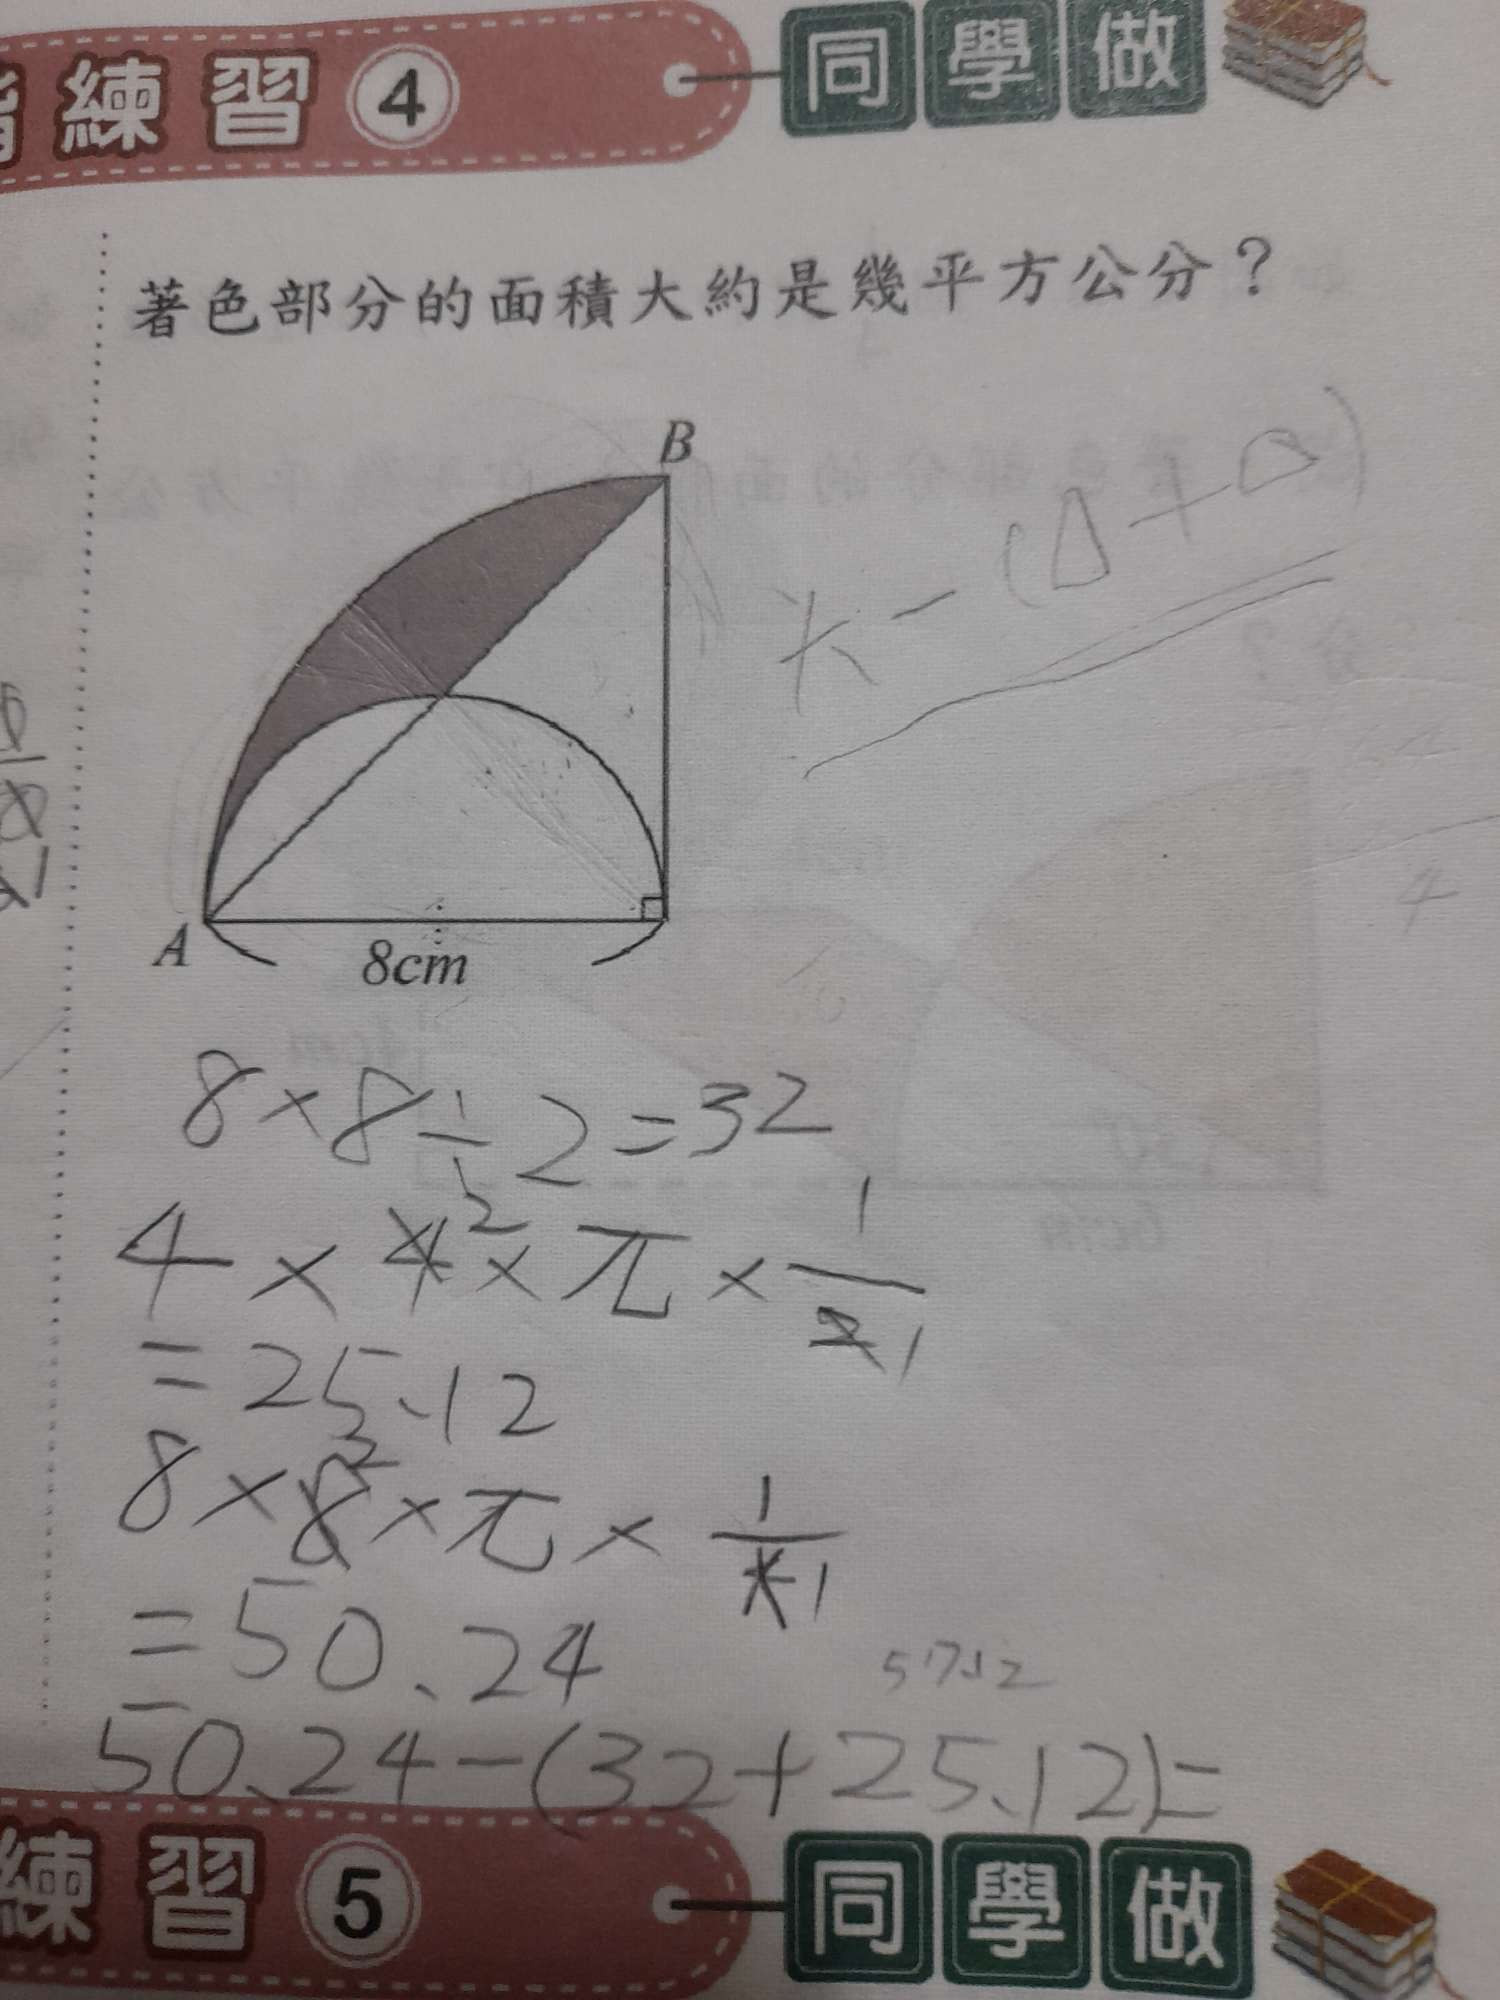 練習 4 同學做
著色部分的面積大約是幾平方公分？
B
大-(△+△)
A
8cm
8×8÷2=32
4×4²×π×1/2 1
=25.12
8×8²×π×1/4 1
=50.24
57.12
50.24-(32+25.12)=
練習 5 同學做